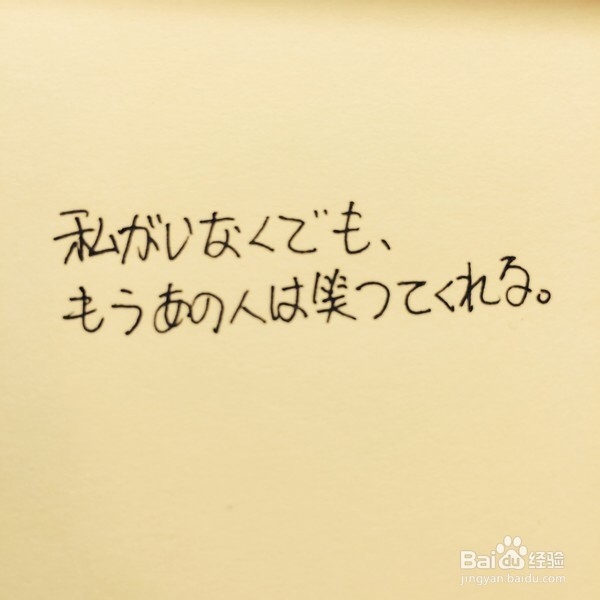 私がいなくでも、
もうあの人は笑ってくれる。
Baidu 经验
jingyan.baidu.com